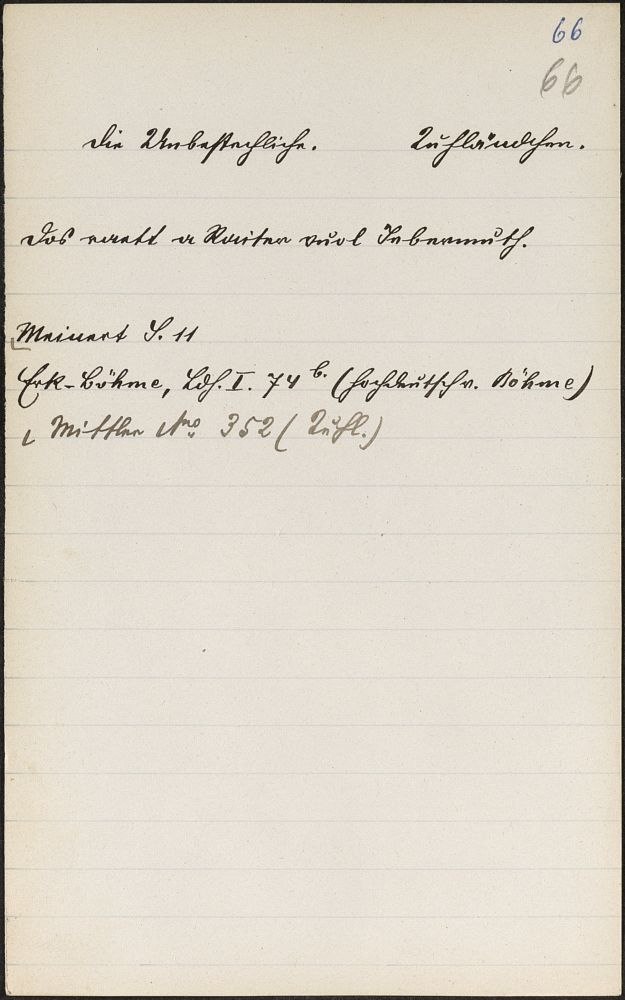 66
66
Die Unbestechliche. Kuhländchen.
Dos raett a Raiter vuol Iebermuth.
Meinert S. 11
Erk-Böhme, Ldh. I. 74 b. (hochdeutsch v. Böhme)
Mittler No 352 (Kuhl.)